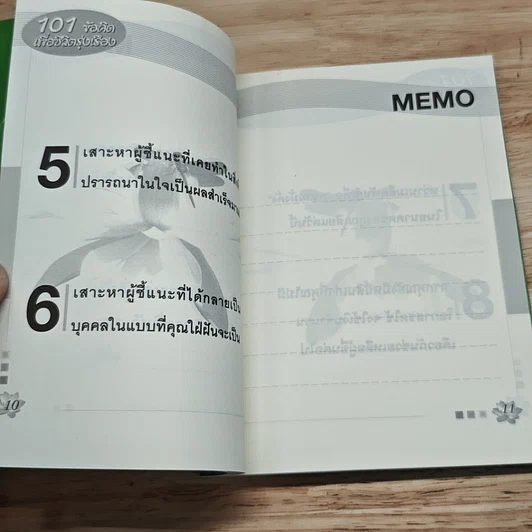 101 ข้อคิด
เพื่อชีวิตรุ่งเรือง
5
เสาะหาผู้ชี้แนะที่เคยทำในสิ่ง
ปรารถนาในใจเป็นผลสำเร็จมา
6
เสาะหาผู้ชี้แนะที่ได้กลายเป็น
บุคคลในแบบที่คุณใฝ่ฝันจะเป็น
10
MEMO
11